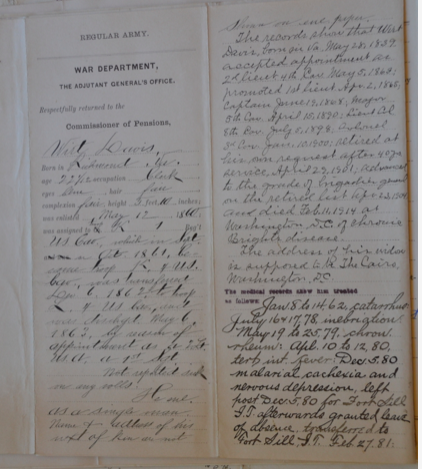 REGULAR ARMY.
WAR DEPARTMENT,
THE ADJUTANT GENERAL'S OFFICE.
Respectfully returned to the
Commissioner of Pensions,
Wirt Davis,
Born in Richmond, Va.
age 22 7/12 occupation Clerk
eyes hair
complexion fair height 5 feet 10 inches;
was enlisted May 12 1860
was assigned to K 1 Reg't
U.S. Cav, which in
Oct 1861, be-
came troop K. 4 U.S.
Cav, was
Dec 6, 1862 to troop
L. 4 U.S. Cav,
was discharged May 6
1863, by reason of
appointment as 2 Lt.
U.S.A. a 1st Sgt.
Not
on any rolls.
He enl.
as a single man.
Name & address of his
of kin not
shown on enl. paper.
The records show that Wirt
Davis, born in Va. May 28, 1839
accepted appointment as
2d Lieut 4th Cav. May 5, 1863;
promoted 1st Lieut Apr. 2, 1865;
Captain June 1868; Major
5th Cav. April 1890; Lieut. Col
8th Cav July 1, 1898; Colonel
3d Cav. Jan. 1900; retired at
his own request after 40 yrs
service, April 1901; Advanced
to the grade of brigadier genl
on the retired list
and died Feb. 11, 1914 at
Washington D.C. of chronic
Brights disease.
The address of his widow
is supposed to be The Cairo,
Washington, D.C.
The medical records show him treated
as follows:
Jan 8 to 14, 62, catarrhus;
July 16 & 17, 78 inebriation;
May 19 to 25, 79, chron.
rheum; Apl. 10 to 12, 80,
tert. int. fever; Dec. 5, 80
malarial cachexia and
nervous depression, left
post Dec. 5, 80 for Fort Sill
I.T. afterwards granted leave
of absence, transferred to
Fort Sill, I.T. Feb. 27, 81.